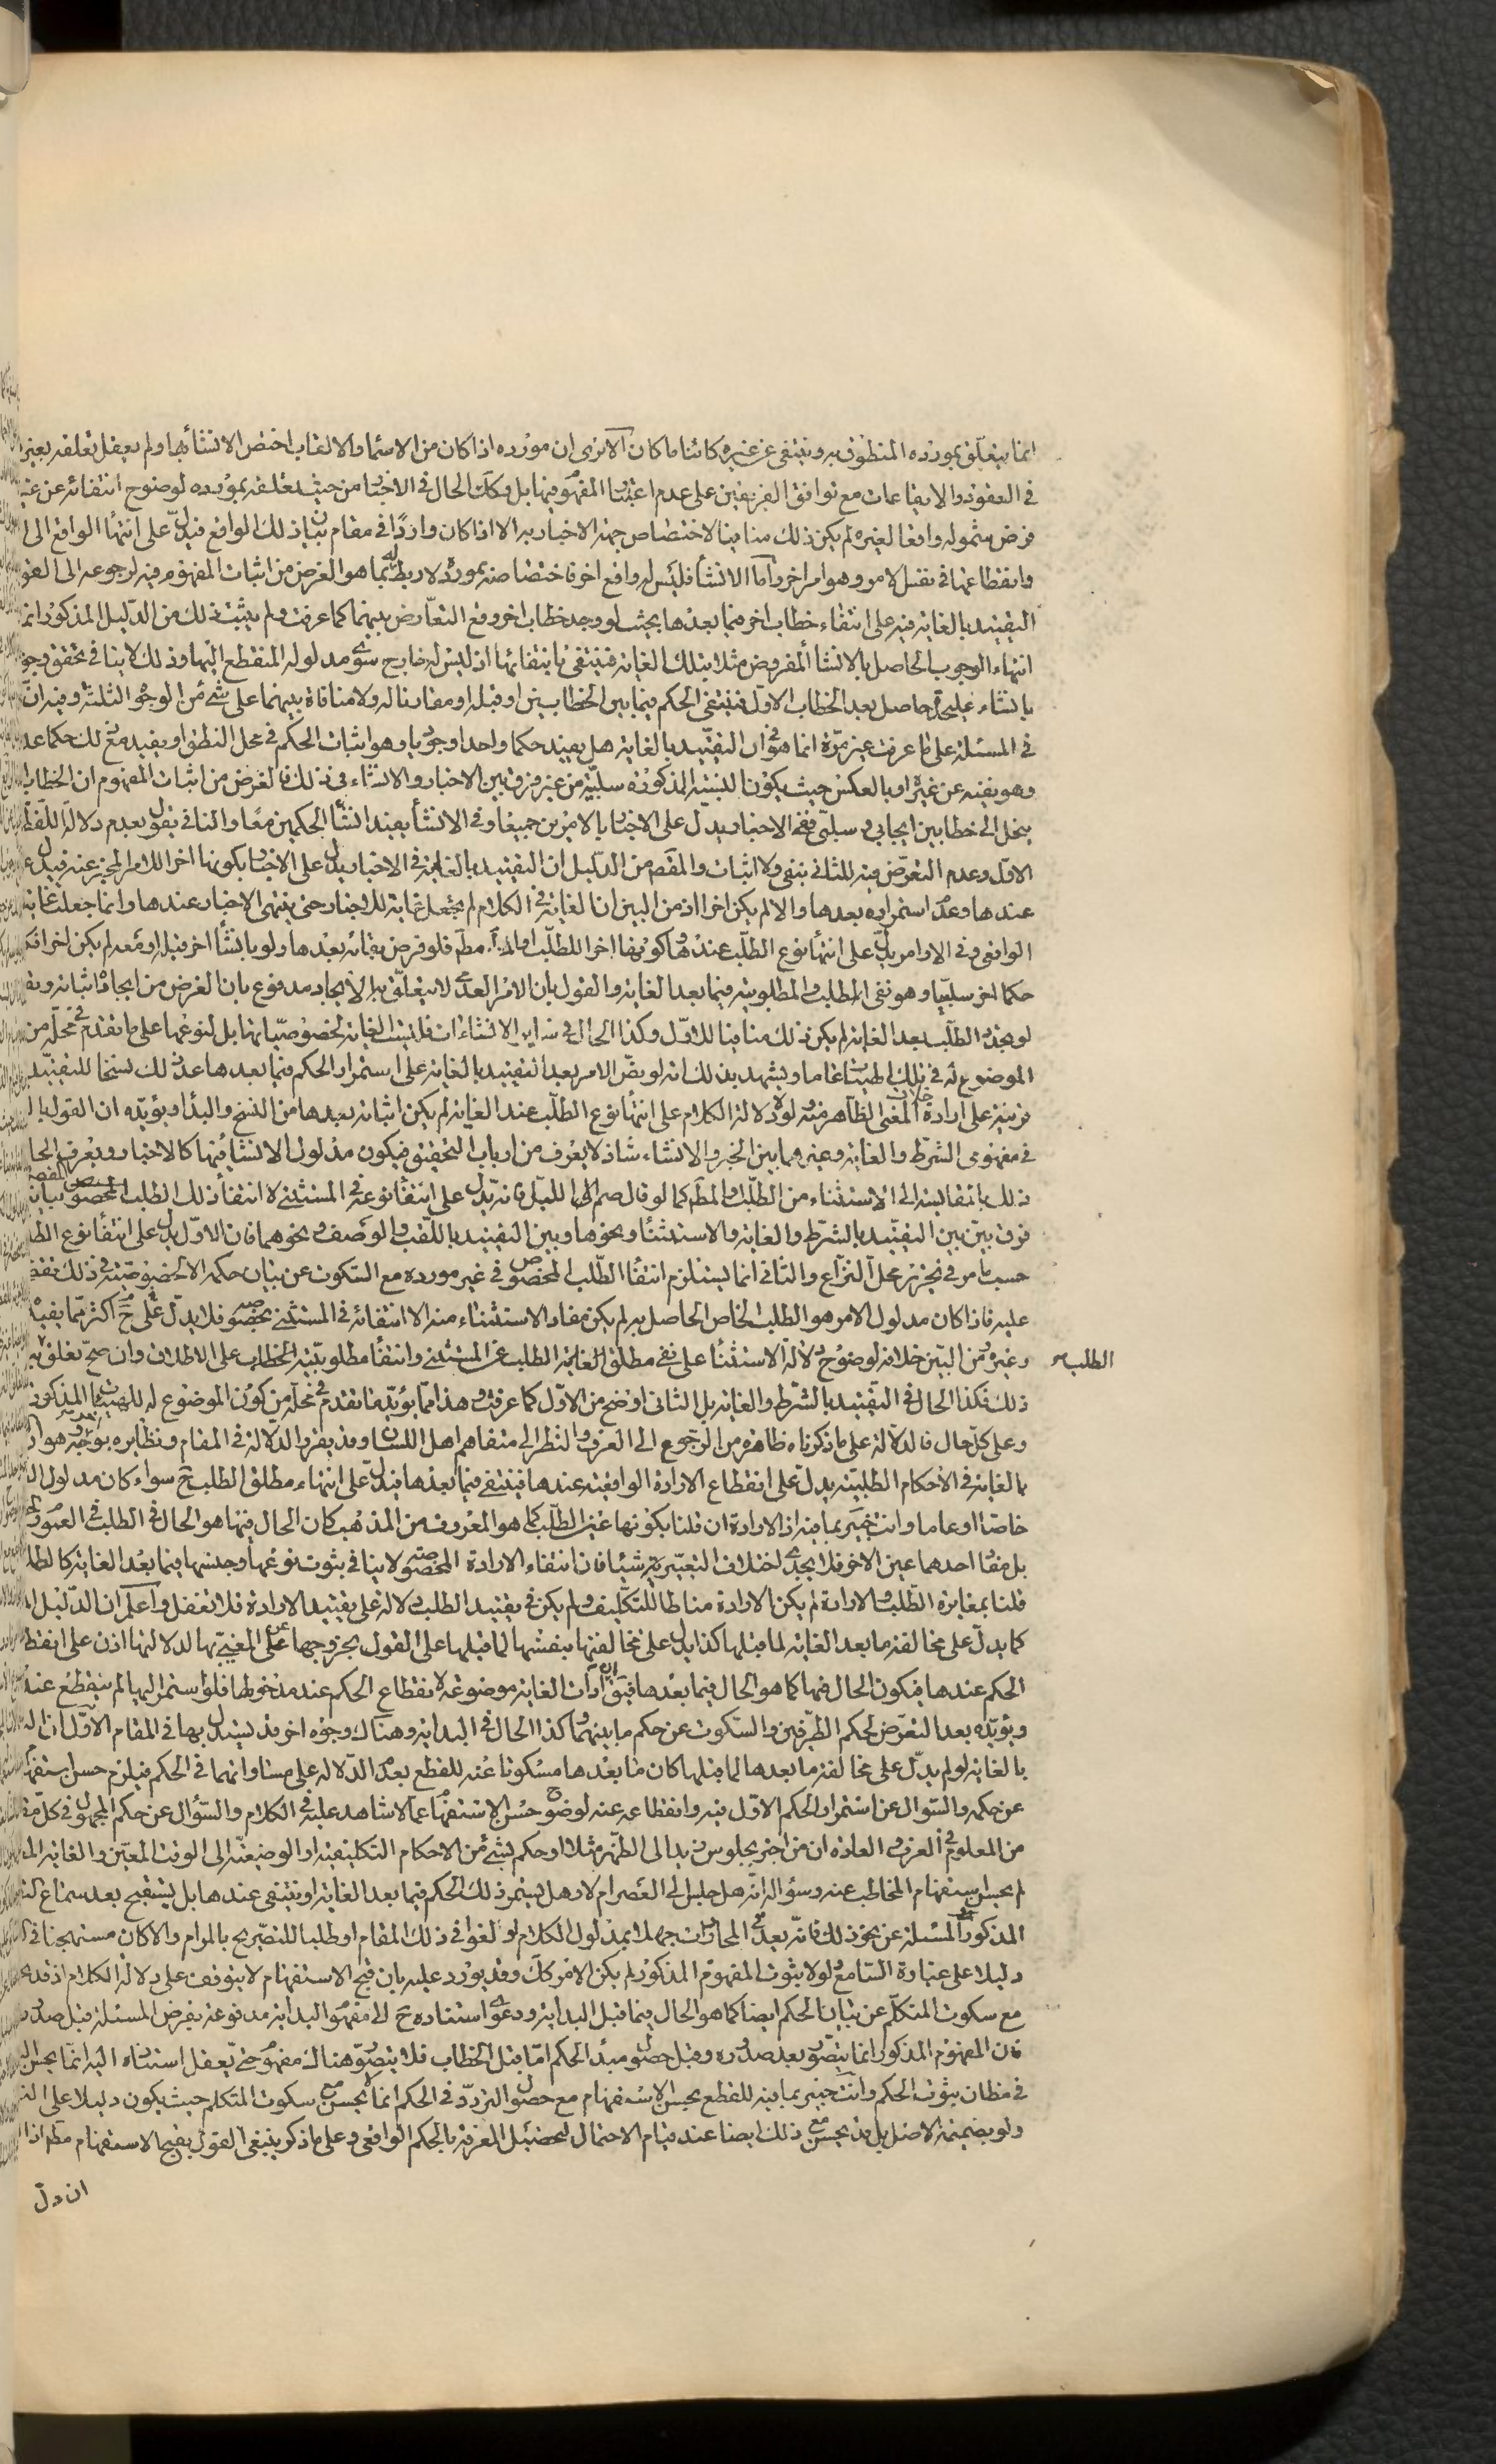 انما يتعلّق بمورده المنطوق به وينتفى عن غيره كائنا ما كان الا ترى ان مورده اذا كان من الاسماء والالقاب اختص الانشاء بها ولم يعقل تعلقه بغير
فى العقود والايقاعات مع توافق الفريقين على عدم اعتبار المفهوم فيها بل وكك الحال فى الاخبار من حيث تعلقه بمورده لوضوح انتفائه عن غيره
فرض شموله واقعا لغيره لم يكن ذلك منافيا لاختصاص جهة الاخبار به الا اذا كان واردا فى مقام بيان ذلك الواقع فيدلّ على انتهاء الواقع الى
وانقطاعها فى نفس الامر وهو امر اخر وامّا الانشاء فليس له واقع اخر فاختصاصه بمورده لا ربط له بما هو الغرض من اثبات المفهوم فيه لرجوعه الى
التقييد بالغاية فيه على انتفاء خطاب اخر فيما بعدها بحيث لو وجد خطاب اخر وقع التعارض بينهما كما عرفت ولم يثبت ذلك من الدّليل المذكور انما
انتهاء الوجوب الحاصل بالانشاء المفروض مثلا بتلك الغاية فينتفى بانتفائها اذ ليس له خارج سوى مدلوله المنقطع اليها وذلك لا ينافى تحقق وجو
بانشاء عليحدة حاصل بعد الخطاب الاول فينتفى الحكم فيما بين الخطابين او قبله او مقارنا له ولا منافاة بينهما على شئ من الوجوه الثلثة وفيه انّ
فى المسئلة على ما عرفت غير مرّة انما هو فى ان التقييد بالغاية هل يفيد حكما واحدا وجوديا وهو اثبات الحكم فى محل النطق او يفيد مع ذلك حكما عد
وهو نفيه عن غيره او بالعكس حيث يكون النسبة المذكورة سلبيّة من غير فرق بين الاخبار والانشاء فى ذلك فالغرض من اثبات المفهوم ان الخطاب
ينحل الى خطابين ايجابى وسلبى ففى الاخبار يدل على الاخبار بالامرين جميعا وفى الانشاء يفيد انشاء الحكمين معا والنافى يقول بعدم دلالة اللفظ
الاول وعدم التعرّض فيه للثانى بنفى ولا اثبات والمقصود من الدّليل ان التقييد بالغاية فى الاخبار يدل على الاخبار بكونها اخرا للامر المخبر عنه فيدل
عندها وعدم استمراره بعدها والا لم يكن اخرا اذ من البين ان الغاية فى الكلام لم يجعل نهاية للاخبار حتى ينتهى الاخبار عندها وانما جعلت غاية
الواقعى وفى الاوامر يدلّ على انتهاء نوع الطلب عندها وكونها اخرا للطلب مطم فلو فرض بقائه بعدها ولو بانشاء اخر قبله او معه لم يكن اخرا
حكما اخر سلبيا وهو نفى الطلب والمطلوبية فيما بعد الغاية والقول بان الامر العدمى لا يتعلّق به الايجاد مدفوع بان الغرض من ايجاده اثباته
لو تجدد الطلب بعد الغاية لم يكن ذلك منافيا للاول وكذا الحال فى ساير الانشاءات فليست الغاية لخصوصيّاتها بل لنوعها على ما تقدم فى محلّه من
الموضوع له فى تلك الهيئات عاما ويشهد بذلك انه لو نصّ الامر بعد التقييد بالغاية على استمرار الحكم فيما بعدها عد ذلك نسخا للتقييد
قرينة على ارادة خلاف المعنى الظاهر منه ولولا دلالة الكلام على انتهاء نوع الطلب عند الغاية لم يكن اثباته بعدها من النسخ والبداء ويؤيّده ان القول
فى مفهومى الشرط والغاية وغيرهما بين الخبر والانشاء شاذ لا يعرف من ارباب التحقيق فيكون مدلول الانشاء فيها كالاخبار ويعرف الحا
ذلك بالمقايسة الى الاستثناء من الطلب والمط كما لو قال صم الا الليل فانه يدلّ على انتفاء نوعه فى المستثنى لا انتفاء ذلك الطلب المخصوص
فرق بيّن بين التقييد بالشرط والغاية والاستثناء ونحوها وبين التقييد باللقب والوصف ونحوهما فان الاوّل يدل على انتفاء نوع
حسب ما مر فى تحرير محل النزاع والثانى انما يستلزم انتفاء الطلب المخصوص فى غير مورده مع السكوت عن بيان حكمه الا لخصوصيّة فى ذلك
عليه فاذا كان مدلول الامر هو الطلب الخاص الحاصل به لم يكن مفاد الاستثناء منه الا انتفائه فى المستثنى بخصوصه فلا يدل على ح اكثر ممّا يفيد
وغيره ومن البيّن خلافه لوضوح دلالة الاستثناء على نفى مطلق الطلب عن المستثنى وانتفاء مطلوبيّته للمخاطب على الاطلاق وان صح تعلق
الطلب صح
ذلك فكذا الحال فى التقييد بالشّرط والغاية بل الثانى اوضح من الاوّل كما عرفت وهذا ممّا يؤيّد ما تقدم فى محلّه من كون الموضوع له للهيئات المذكور
وعلى كل حال فالدلالة على ما ذكرناه ظاهرة من الرّجوع الى العرف والنظر الى متفاهم اهل اللسان وقد يقرر الدلالة فى المقام ونظايره بوجه اخر وهو
بالغاية فى الاحكام الطلبيّة يدلّ على انقطاع الارادة الواقعيّة عندها فينتفى فيما بعدها فيدل على انتهاء مطلق الطلب ح سواء كان مدلول
خاصا او عاما وانت خبير بما فيه اذ الارادة ان قلنا بكونها غير الطلب كما هو المعروف من المذهب كان الحال فيها هو الحال فى الطلب فى العموم
بل مفاد احدهما عين الاخر فلا يجدى اختلاف التعبير به شيئا فان انتفاء الارادة المخصوصة لا ينافى ثبوت نوعها وجنسها فيما بعد الغاية كالطلب
قلنا بمغايرة الطلب والارادة لم يكن الارادة مناطا للتكليف ولم يكن فى تقييد الطلب دلالة على تقييد الارادة فلا تغفل واعلم ان الدّليل
كما يدل على مخالفة ما بعد الغاية لما قبلها كذا يدل على مخالفتها بنفسها لما قبلها على القول بخروجها عن المغيى بها لدلالتها اذن على انقطا
الحكم عندها فيكون الحال فيها كما هو الحال فيما بعدها فيق ان ادات الغاية موضوعة لانقطاع الحكم عند مدخولها فلو استمر اليها لم ينقطع عنده
ويؤيّده بعد التعرّض لحكم الطّرفين والسّكوت عن حكم ما بينهما وكذا الحال فى البداية وهناك وجوه اخر قد يستدل بها فى المقام الاوّل ان
بالغاية لو لم يدلّ على مخالفة ما بعدها لما قبلها كان ما بعدها مسكوتا عنه للقطع بعدم الدّلالة على مساواتهما فى الحكم فيلزم حسن الاستفهام
عن حكمه والسؤال عن استمرار الحكم الاوّل فيه وانقطاعه عنه لوضوح حسن الاستفهام عمّا لا شاهد عليه فى الكلام والسّؤال عن حكم المجهول فى كلّ
من المعلوم فى العرف والعادة ان من اخبر بجلوس زيد الى الظهر مثلا او حكم بشئ من الاحكام التكليفية او الوضعيّة الى الوقت المعيّن والغاية
لم يحسن استفهام المخاطب عنه وسؤاله انّه هل جلس الى العصر ام لا وهل يستمر ذلك الحكم فيما بعد الغاية او ينتفى عندها بل يستقبح بعد سماع
المذكور المسئلة عن نحو ذلك فانّه يعد فى المحاورات جهلا بمدلول الكلام او لغوا فى ذلك المقام او طلبا للتصريح بالمرام والا كان مستهجنا
دليلا على عبارة السّامع ولولا ثبوت المفهوم المذكور لم يكن الامر كك وقد يورد عليه بان قبح الاستفهام لا يتوقف على دلالة الكلام اذ قد
مع سكوت المتكلّم عن بيان الحكم ايضا كما هو الحال فيما قبل البداية ودعوى استناده ح الى مفهوم البداية مدفوعة بفرض المسئلة قبل
فان المفهوم المذكور انما يتصور بعد صدوره وقبل حصول مبدأ الحكم امّا قبل الخطاب فلا يتصوّر هناك مفهوم حتى يعقل استناده اليه انما يحسن
فى مظان ثبوت الحكم وانت خبير بما فيه للقطع بحسن الاستفهام مع حصول التردّد فى الحكم انما لا يحسن مع سكوت المتكلم حيث يكون دليلا على
ولو بضميمة الاصل بل قد يحسن مع ذلك ايضا عند قيام الاحتمال لتحصيل المعرفة بالحكم الواقعى وعلى ما ذكر ينبغى القول بقبح الاستفهام مطم اذا
ان دل